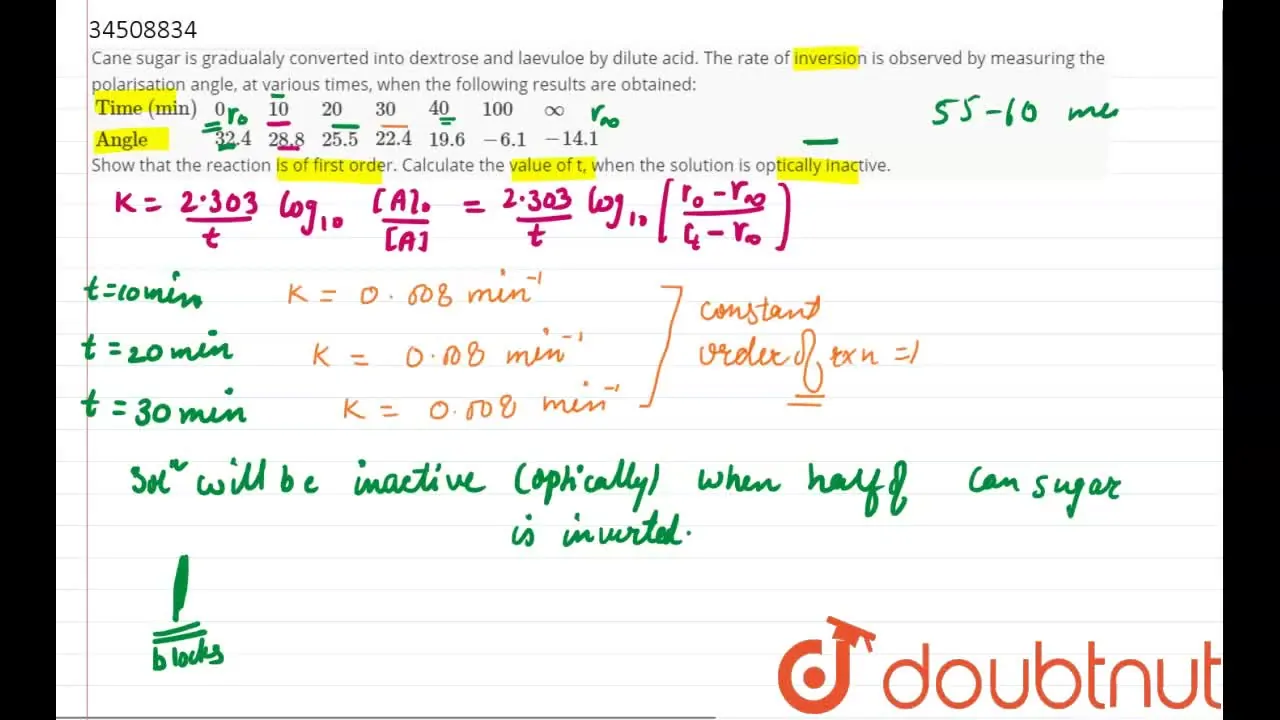 34508834
Cane sugar is gradualaly converted into dextrose and laevuloe by dilute acid. The rate of inversion is observed by measuring the
polarisation angle, at various times, when the following results are obtained:
Time (min) 0 r₀ 10 20 30 40 100 ∞ r∞
Angle 32.4 28.8 25.5 22.4 19.6 −6.1 −14.1
55-60
Show that the reaction is of first order. Calculate the value of t, when the solution is optically inactive.
K = 2.303/t log₁₀ [A]₀/[A] = 2.303/t log₁₀ [r₀ − r∞/rₜ − r∞]
t=10min K = 0.008 min⁻¹
t = 20min K = 0.008 min⁻¹
t = 30min K = 0.008 min⁻¹
constant
order of rxn =1
Solⁿ will be inactive (optically) when half of can sugar
is inverted.
blocks
doubtnut